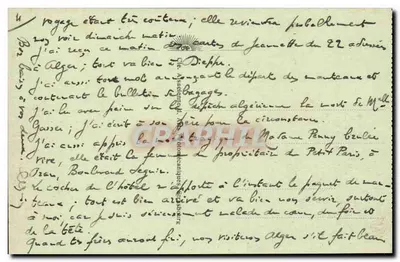 4
voyage étant très coûteux ; elle reviendra probablement
nous voir dimanche matin.
J'ai reçu ce matin des cartes de Jeannette du 22 adressées
à Alger ; tout va bien à Dieppe.
J'ai aussi ton mot annonçant le départ des manteaux et
contenant le bulletin de bagages.
J'ai lu avec peine sur la Dépêche algérienne la mort de Mlle
Gasse ; j'ai écrit à son père pour la circonstance.
J'ai aussi appris la mort de Madame Penny brulée
vive, elle était la femme du propriétaire du Petit Paris, à
Oran, Boulevard Seguin.
Le cocher de l'hôtel m'apporte à l'instant le paquet de man-
teaux ; tout est bien arrivé et va bien nous servir, surtout
à moi car je suis sérieusement malade du cœur, du foie et
de la tête.
Quand tes frères auront fini, nous visiterons Alger s'il fait beau
Bons baisers à vous deux
CPARAMA